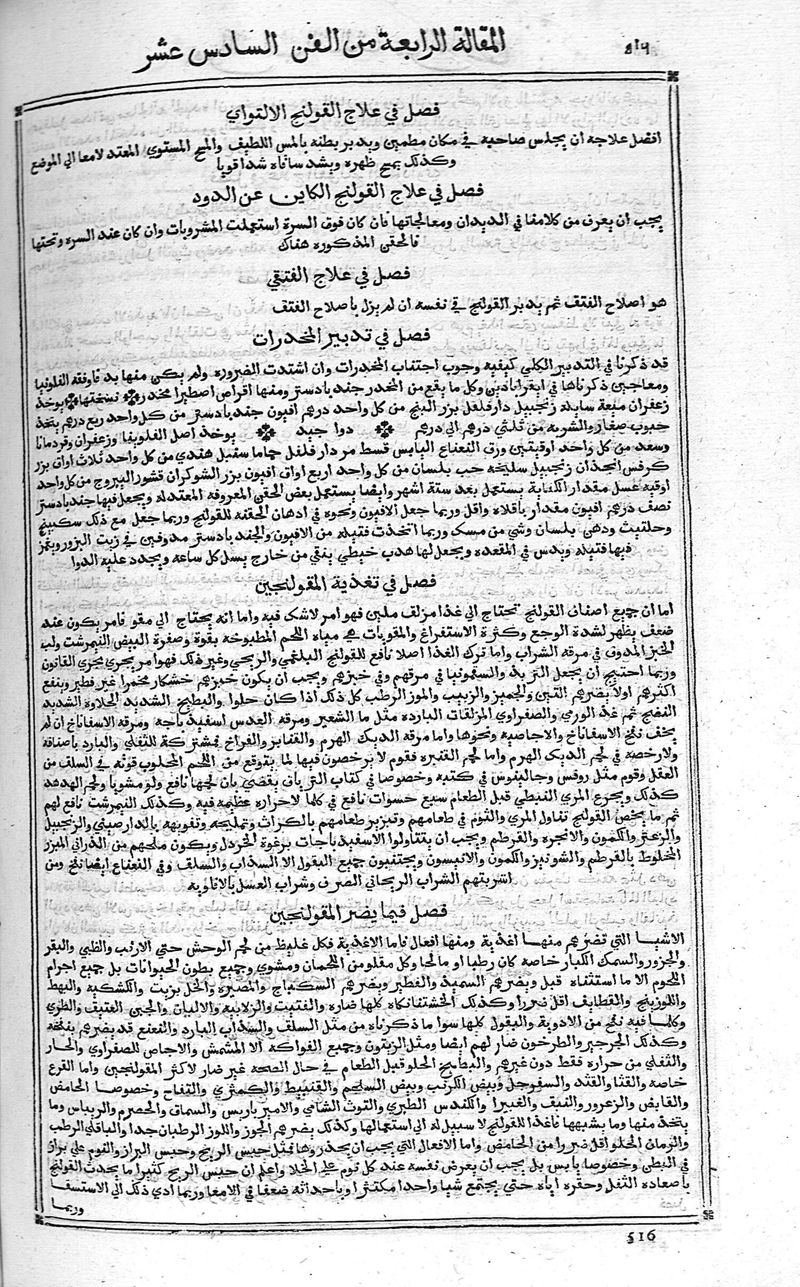 ٥١٦
المقالة الرابعة من الفن السادس عشر
فصل في علاج القولنج الالتواي
افضل علاجه ان يجلس صاحبه في مكان مطمين ويدبر بطنه بالمس اللطيف والمسح المستوي المعتد لامعا الي الموضع
وكذلك يمسح ظهره ويشد ساقاه شدا قويا
فصل في علاج القولنج الكاين عن الدود
يجب ان يعرف من كلامنا في الديدان ومعالجاتها فان كان فوق السرة استعملت المشروبات وان كان عند السره وتحتها
فالحقن المذكوره هناك
فصل في علاج الفتقي
هو اصلاح الفتف ثم يدبر القولنج في نفسه ان لم يزل باصلاح الفتف
فصل في تدبير المخدرات
قد ذكرنا في التدبير الكلي كيفيه وجوب اجتناب المخدرات وان اشتدت الضروره ولم يكن منها بد فاوفقه الفلونيا
ومعاجين ذكرناها في اقراباذين وكل ما يقع من المخدر جندبادستر ومنها اقراص اصطيرا مخدر نسختها يوخذ
زعفران ميعة سايلة زنجبيل دارفلفل بزر البنج من كل واحد درهم افيون جندبادستر من كل واحد ربع درهم يتخذ
حبوب صغار والشربه من ثلثي درهم الي درهم دوا جيد يوخذ اصل الفلونيا وزعفران وقردمانا
وسعد من كل واحد اوقيتين ورق النعناع اليابس قسط مر دارفلفل حماما سنبل هندي من كل واحد ثلاث اواق بزر
كرفس انجدان زنجبيل سليخه حب بلسان من كل واحد اربع اواق افيون بزر الشوكران قشور اليبروج من كل واحد
اوقيه عسل مقدار الكفاية يستعمل بعد ستة اشهر وايضا يستعمل بعض الحقن المعروفه المعتدله ويجعل فيها جندبادستر
نصف درهم افيون مقدار باقلاه واقل وربما جعل الافيون ونحوه في ادهان الحقنه للقولنج وربما جعل مع ذلك سكبينج
وحلتيت ودهن بلسان وشي من مسك وربما اتخذت فتيله من الافيون والجندبادستر مدوفين في زيت البزور ويغمز
فيها فتيله ويدس في المقعده ويجعل لها هدب خيطي يبقي من خارج يسل كل ساعه ويجدد عليه الدوا
فصل في تغذية المقولنجين
اما ان جميع اصناف القولنج تحتاج الي غذا مزلف ملين فهو امر لاشك فيه واما انه يحتاج الي مقو فامر يكون عند
ضعف يظهر لشدة الوجع وكثرة الاستفراغ والمقويات هي مياه اللحم المطبوخه بقوة وصفرة البيض النيمرشت ولب
الخبز المدوف في مرقه الشراب واما ترك الغذا اصلا نافع للقولنج البلغمي والريحي وغير ذلك فهو امر يجري مجري القانون
وربما احتيج ان يجعل التربد والسقمونيا في مرقهم وفي خبزهم ويجب ان يكون خبزهم خشكار مخمرا غير فطير وينفع
اكثرهم اولا يضرهم التين والجميز والزبيب والموز الرطب كل ذلك اذا كان حلوا والبطيخ الشديد الحلاوه الشديد
النضج ثم غذ الورمي والصفراوي المزلقات البارده مثل ما الشعير ومرقه العدس اسفيدباجه ومرقه الاسفاناخ ان لم
يخف نفخ الاسفاناخ والاجاصيه ونحوها واما مرقه الديك الهرم والقنابر والفراخ فمشتركة للثفلي والبارد باصنافه
ولا رخصه في لحم الديك الهرم واما لحم القنبره فقوم لا يرخصون فيها لما يقوقع من اللحم المجلوب قوته في السلف من
العقل وقوم مثل روفس وجالينوس في كتبه وخصوصا في كتاب الترياق يقضي بان لحمها نافع ولو مشويا ولحم الهدهد
كذلك ويجرع المري النبطي قبل الطعام سبع حسوات نافع في كلها لاحراره عظيمه فيه وكذلك النيمرشت نافع لهم
ثم ما يخص القولنج تناول المري والثوم في طعامهم وتبزير طعامهم بالكراث وتمليحه وتفويهه بالدارصيني والزنجبيل
والزعتر والكمون والانجره والقرطم ويجب ان يتناولوا الاسفيدباجات برغوة الخردل ويكون ملحهم من الذراني المبزر
المخلوط بالقرطم والشونيز والكمون والانيسون ويجتنبون جميع البقول الا السذاب والسلف وفي النعناع ايضا نفخ ومن
اشربتهم الشراب الريحاني الصرف وشراب العسل بالافاويه
فصل فيما يضر المقولنجين
الاشيا التي تضرهم منها اغذية ومنها افعال فاما الاغذية فكل غليظ من لحم الوحش حتي الارنب والظبي والبقر
والجزور والسمك الكبار خاصه كان رطبا او مالحا وكل مقلو من اللحمان ومشوي وجميع بطون الحيوانات بل جميع اجرام
اللحوم الا ما استثناه قبل ويضرهم السميد والفطير ويضرهم السكباج والمصيره والخل بزيت والكشكيه والبهط
واللوزينج والقطايف اقل ضررا وكذلك الخشتنانكاه كلها ضاره والفتيت والزلابيه والالبان والجبن العتيق والطري
وكلما فيه نفخ من الادوية والبقول كلها سوا ما ذكرناه من مثل السلف والسذاب البارد والنعنع قد يضرهم بنفخه
وكذلك الجرجير والطرخون ضار لهم ايضا ومثل الزيتون وجميع الفواكه الا المشمش والاجاص للصفراوي والحار
والثفلي من حراره فقط دون غيرهم والبطيخ الحلو قبل الطعام في حال الصحه غير ضار لاكثر المقولنجين واما القرع
خاصه والقثا والقثد والسفرجل وبيض الكرنب وبيض السلجم والقنبيط والكمثري والتفاح وخصوصا الحامض
والقابض والزعرور والنبق والغبيرا والكندس الطبري والتوت الشامي والامبر باريس والسماق والحصرم والريباس وما
يتخذ منها وما يشبهها فاغذا القولنج لا سبيل له الي استعمالها وكذلك يضرهم الجوز واللوز الرطبان جدا والباقلي الرطب
والرمان الحلو اقل ضررا من الحامض واما الافعال التي يجب ان يحذروها فمثل حبس الريح وحبس البراز والنوم علي براز
في البطن وخصوصا يابس بل يجب ان يعرض نفسه عند كل نوم علي الخلا واعلم ان حبس الريح كثيرا ما يحدث القولنج
باصعاده الثفل وحقره اياه حتي يجتمع شيا واحدا مكتنزا وباحداثه ضعفا في الامعا وربما ادي ذلك الي الاستسقا
وربما
516